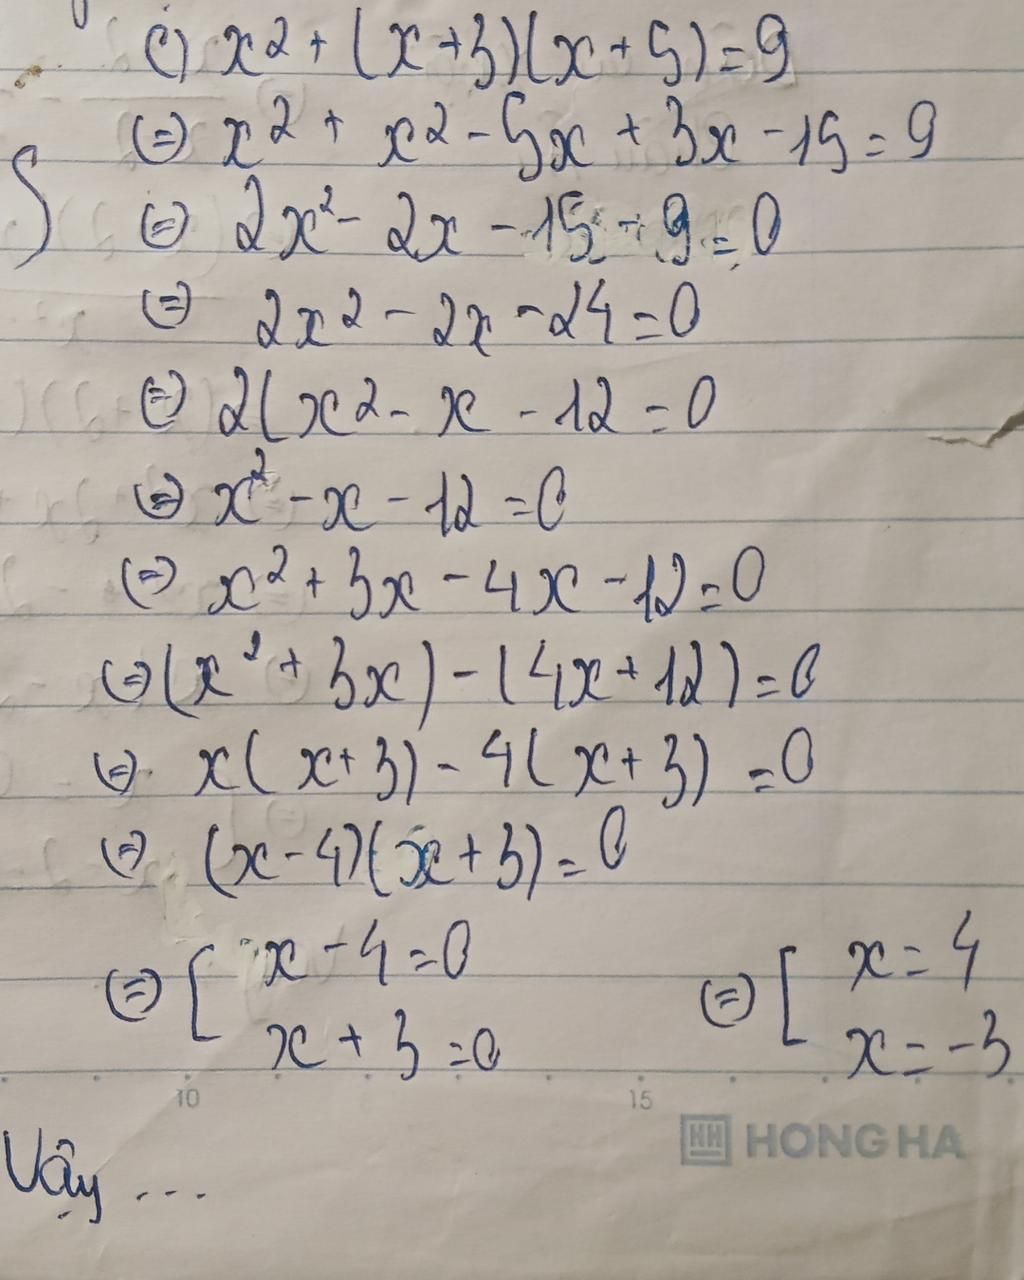 c) x² + (x+3)(x+5)=9
(=) x² + x² - 5x + 3x - 15 = 9
(=) 2x² - 2x - 15 - 9 = 0
(=) 2x² - 2x - 24 = 0
(=) 2(x² - x - 12 = 0
(=) x² - x - 12 = 0
(=) x² + 3x - 4x - 12 = 0
(=) (x² + 3x) - (4x + 12) = 0
(=) x(x+3) - 4(x+3) = 0
(=) (x-4)(x+3) = 0
(=) [ x - 4 = 0 (=) [ x = 4
x + 3 = 0 x = -3
10 15
HH HONG HA
Vậy ...